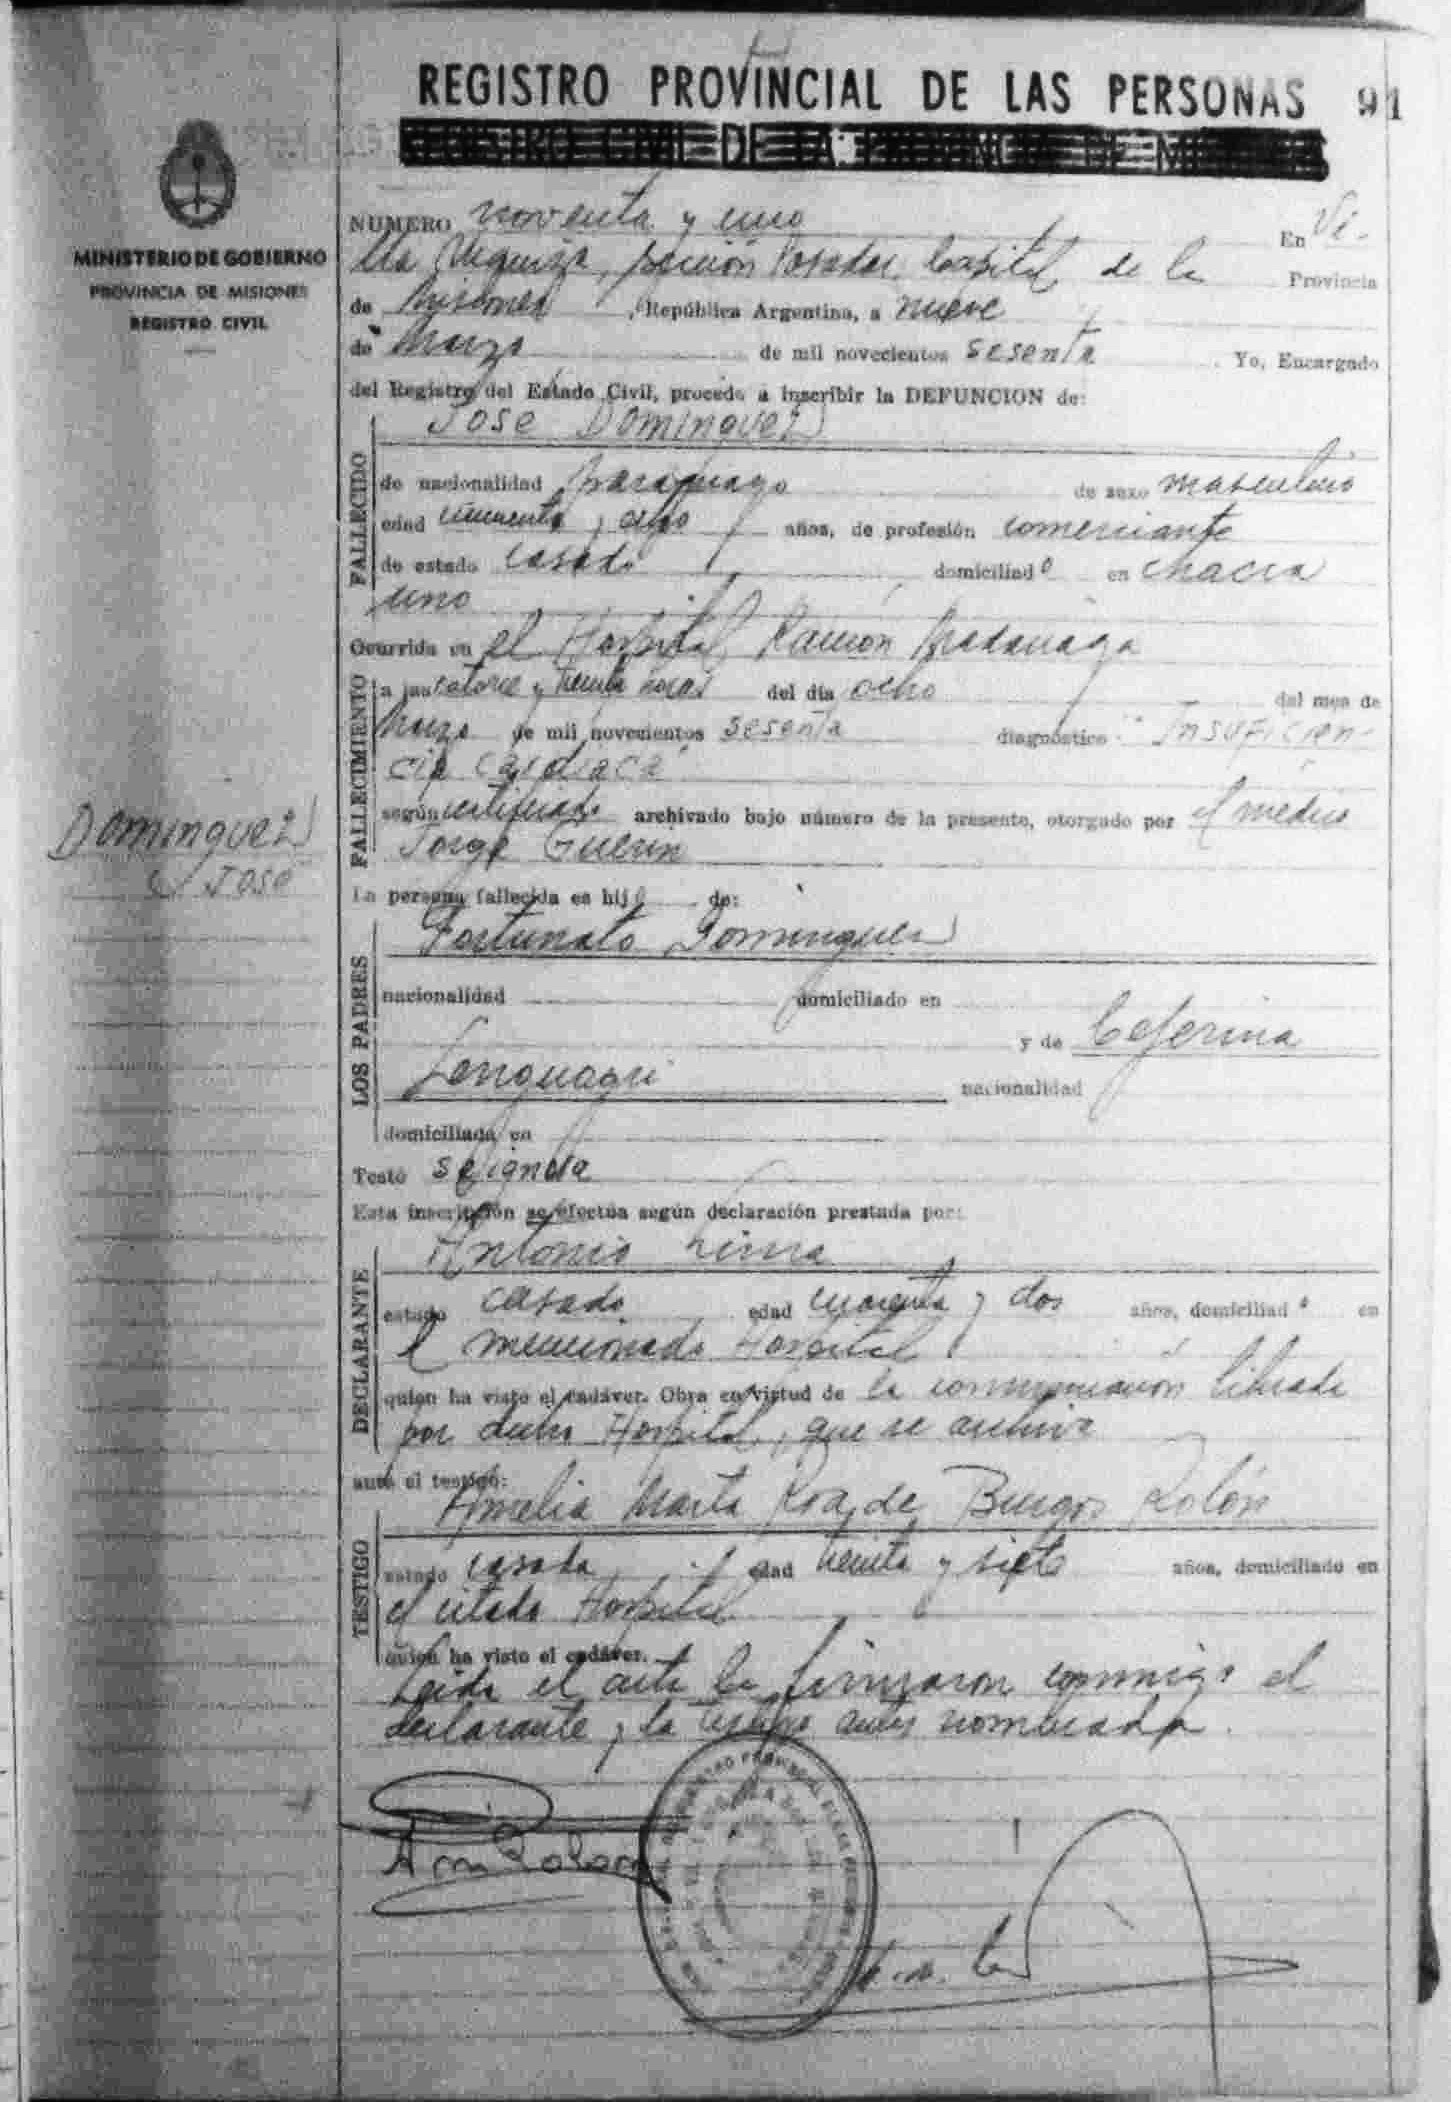 REGISTRO PROVINCIAL DE LAS PERSONAS 91
MINISTERIO DE GOBIERNO
PROVINCIA DE MISIONES
REGISTRO CIVIL
NUMERO noventa y uno En Vi-
lla Urquiza, sección Posadas Capital de la Provincia
de Misiones, República Argentina, a nueve
de Marzo de mil novecientos sesenta. Yo, Encargado
del Registro del Estado Civil, procedo a inscribir la DEFUNCION de:
Jose Dominguez
FALLECIDO
de nacionalidad paraguayo de sexo masculino
edad cincuenta y años, de profesión comerciante
de estado casado domiciliado en chacra
uno
Ocurrida en el Hospital Ramón Madariaga
FALLECIMIENTO
a las catorce y treinta horas del día ocho del mes de
Marzo de mil novecientos sesenta diagnóstico Insuficien-
cia cardiaca
según certificado archivado bajo número de la presente, otorgado por el médico
Jorge Guerin
Dominguez
Jose
La persona fallecida es hijo de:
LOS PADRES
Fortunato Dominguez
nacionalidad domiciliado en
y de Ceferina
nacionalidad
domiciliada en
Testó se ignora
Esta inscripción se efectúa según declaración prestada por:
DECLARANTE
Antonio
estado casado edad cuarenta y dos años, domiciliado en
el mencionado Hospital
quien ha visto el cadáver. Obra en virtud de la comunicación librada
por dicho Hospital, que se archiva
ante el testigo:
TESTIGO
Amelia Marta Roa de Burgos Rolón
estado casada edad treinta y siete años, domiciliado en
el citado Hospital
quien ha visto el cadáver.
Leida el acta la firmaron conmigo el
declarante y la testigo antes nombrada.